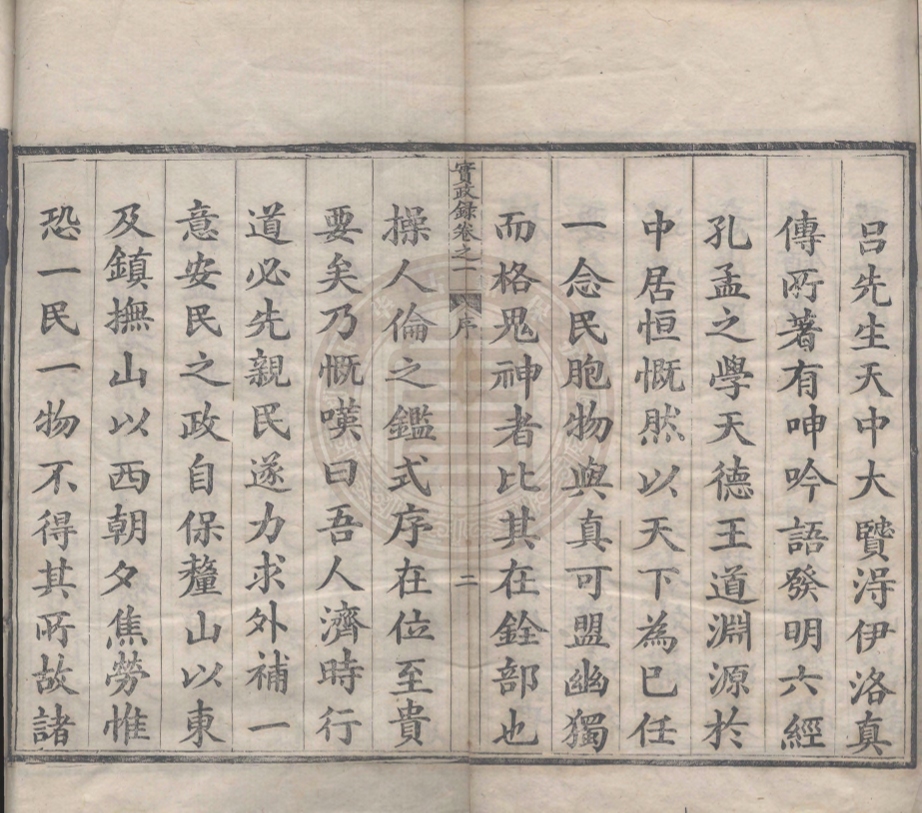 呂先生天中大賢淂伊洛真
傳所著有呻吟語發明六經
孔孟之學天德王道淵源於
中居恒慨然以天下為已任
一念民胞物與真可盟幽獨
而格鬼神者比其在銓部也
實政錄卷之一
序
二
操人倫之鑑式序在位至貴
要矣乃慨嘆曰吾人濟時行
道必先親民遂力求外補一
意安民之政自保釐山以東
及鎮撫山以西朝夕焦勞惟
恐一民一物不得其所故諸